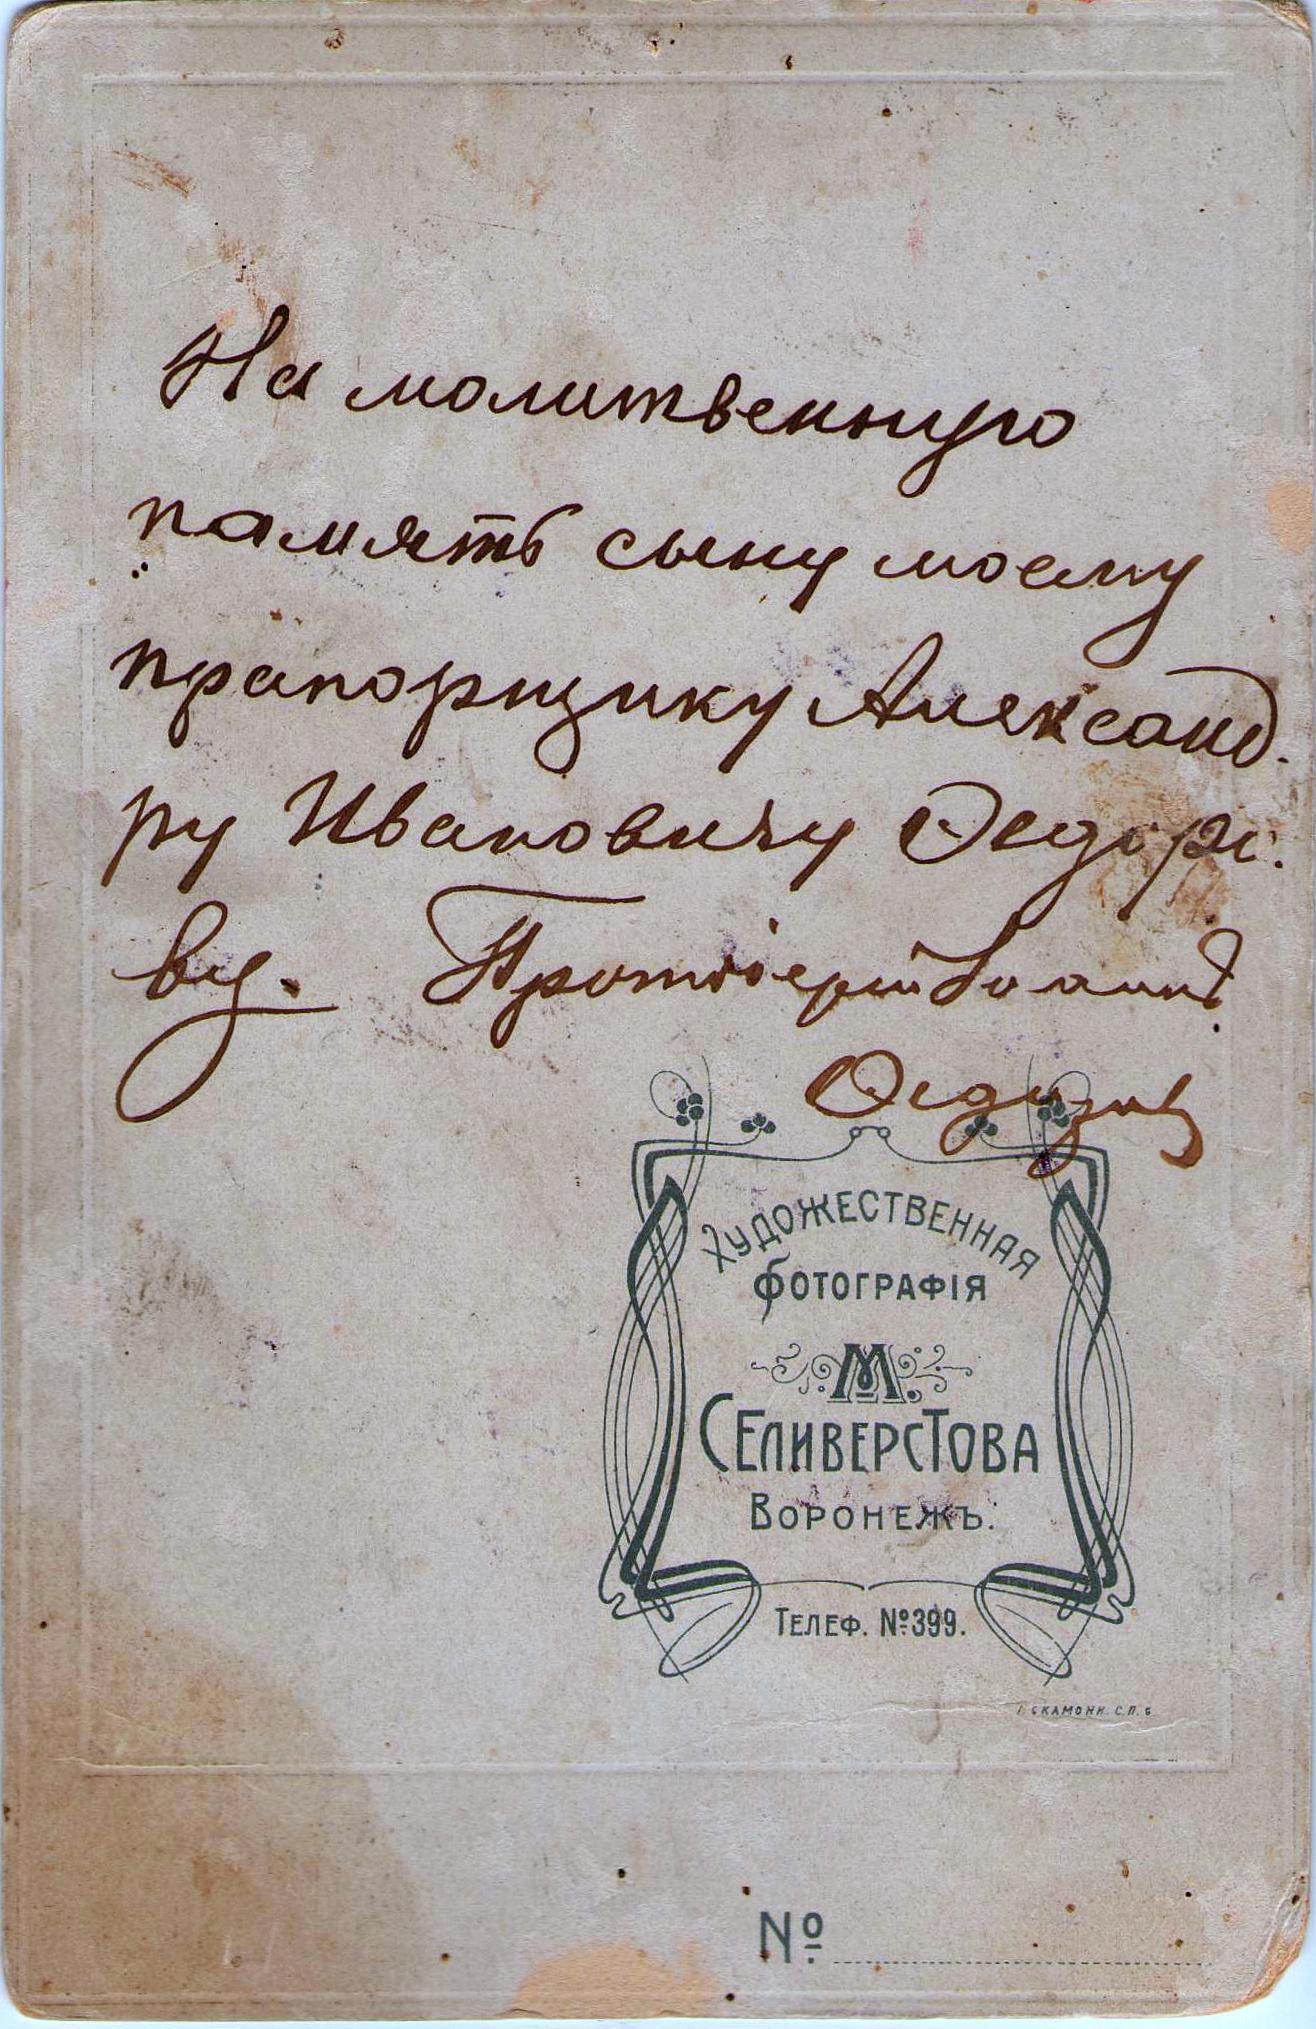 На молитвенную
память сыну моему
прапорщику Александ-
ру Ивановичу Ѳедоро-
ву. Протоіерей Іоаннъ
Ѳедоров
ХУДОЖЕСТВЕННАЯ
ФОТОГРАФІЯ
М.
СЕЛИВЕРСТОВА
ВОРОНЕЖЪ.
ТЕЛЕФ. №399.
СКАМОНИ. С.П.Б
№